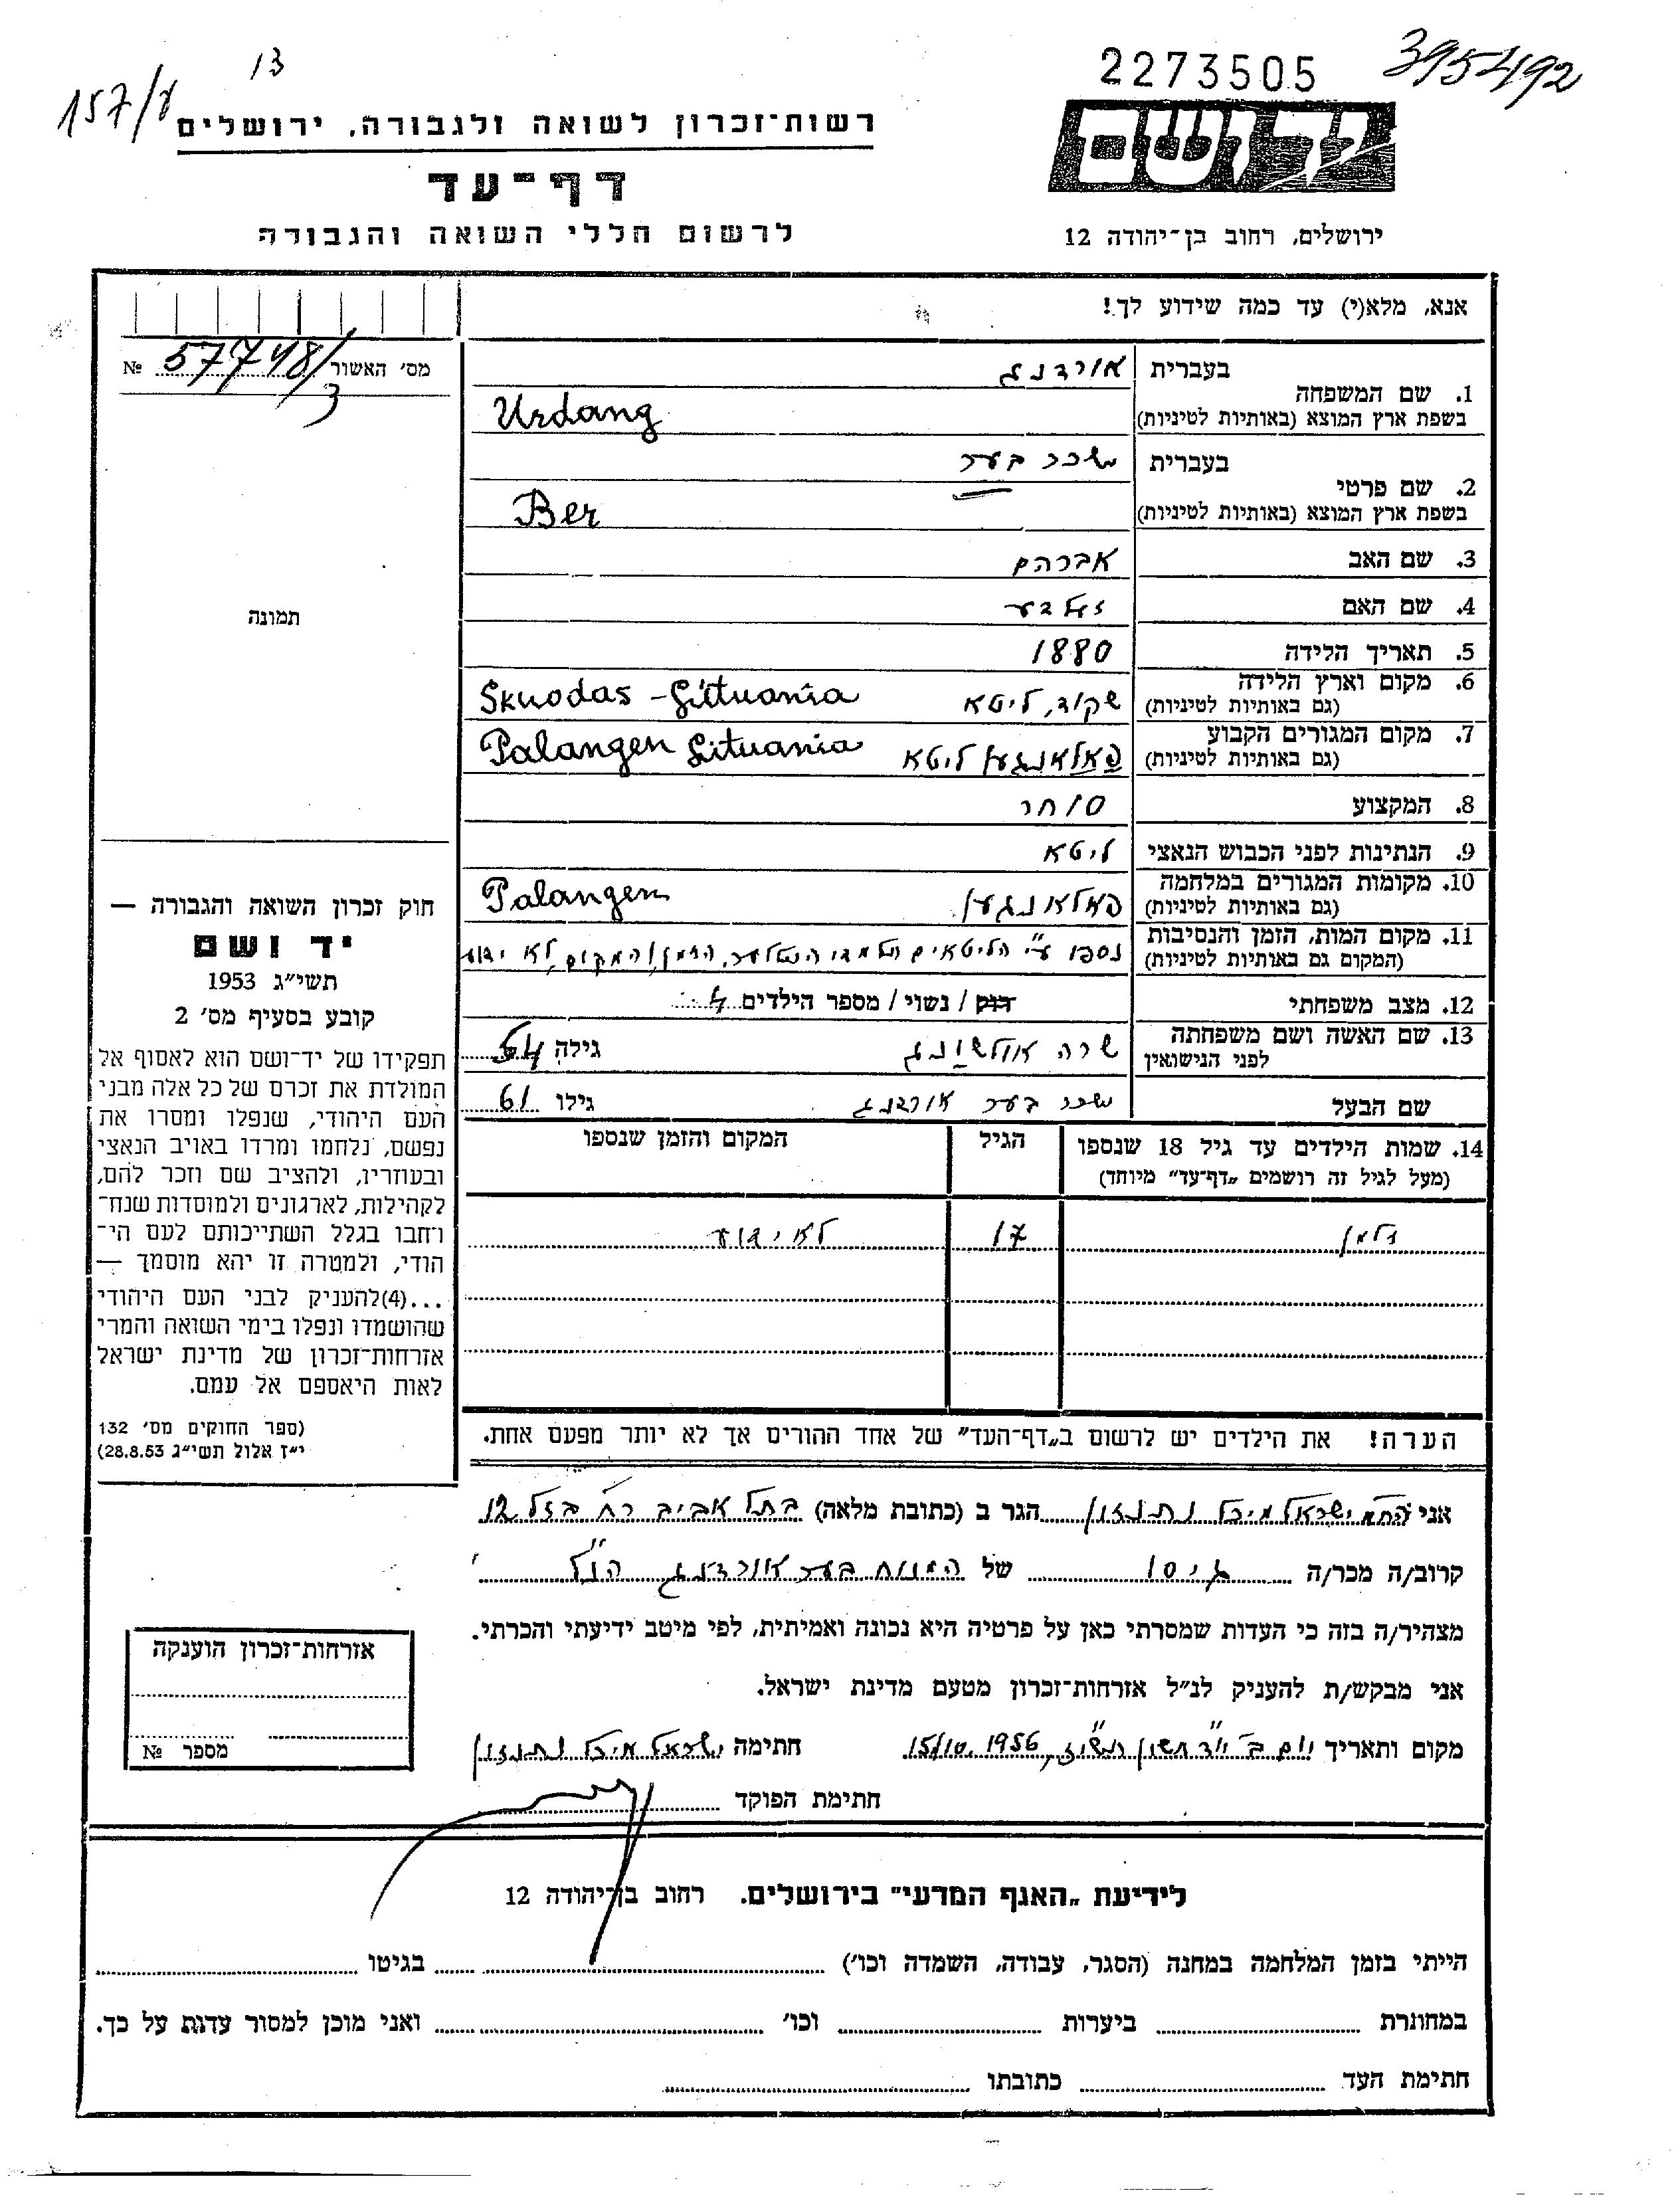 13
157/ע
2273505
395492
רשות־זכרון לשואה ולגבורה, ירושלים
דף־עד
לרשום חללי השואה והגבורה
יד ושם
ירושלים, רחוב בן־יהודה 12
אנא, מלא(י) עד כמה שידוע לך!
מס׳ האשור 57748/3 №
1. שם המשפחה
בעברית אורדנג
בשפת ארץ המוצא (באותיות לטיניות) Urdang
2. שם פרטי
בעברית ישכר בער
בשפת ארץ המוצא (באותיות לטיניות) Ber
3. שם האב אברהם
4. שם האם זעלבע
5. תאריך הלידה 1880
6. מקום וארץ הלידה שקוד, ליטא Skuodas - Littuania
(גם באותיות לטיניות)
7. מקום המגורים הקבוע פאלאנגען ליטא Palangen Lituania
(גם באותיות לטיניות)
8. המקצוע סוחר
9. הנתינות לפני הכבוש הנאצי ליטא
10. מקומות המגורים במלחמה פאלאנגען Palangen
(גם באותיות לטיניות)
11. מקום המות, הזמן והנסיבות נספו ע״י הליטאים תלמידי היטלער, הזמן והמקום לא ידוע
(המקום גם באותיות לטיניות)
12. מצב משפחתי רווק / נשוי / מספר הילדים 4
13. שם האשה ושם משפחתה שרה אולשונג גילה 54
לפני הנישואין
שם הבעל ישכר בער אורדנג גילו 61
14. שמות הילדים עד גיל 18 שנספו הגיל המקום והזמן שנספו
(מעל לגיל זה רושמים „דף־עד״ מיוחד)
זלמן 17 לא ידוע
הערה! את הילדים יש לרשום ב„דף־העד״ של אחד ההורים אך לא יותר מפעם אחת.
תמונה
חוק זכרון השואה והגבורה —
יד ושם
תשי״ג 1953
קובע בסעיף מס׳ 2
תפקידו של יד־ושם הוא לאסוף אל
המולדת את זכרם של כל אלה מבני
העם היהודי, שנפלו ומסרו את
נפשם, נלחמו ומרדו באויב הנאצי
ובעוזריו, ולהציב שם וזכר להם,
לקהילות, לארגונים ולמוסדות שנח־
רחבו בגלל השתייכותם לעם הי־
הודי, ולמטרה זו יהא מוסמך —
...(4)להעניק לבני העם היהודי
שהושמדו ונפלו בימי השואה והמרי
אזרחות־זכרון של מדינת ישראל
לאות היאספם אל עמם.
(ספר החוקים מס׳ 132
י״ז אלול תשי״ג 28.8.53)
אני החמ ישראל מיכל נתנזון הגר ב (כתובת מלאה) בתל אביב רח׳ בזל 12
קרוב/ה מכר/ה גיסו של המנוח בער אורדנג הנ״ל
מצהיר/ה בזה כי העדות שמסרתי כאן על פרטיה היא נכונה ואמיתית, לפי מיטב ידיעתי והכרתי.
אני מבקש/ת להעניק לנ״ל אזרחות־זכרון מטעם מדינת ישראל.
מקום ותאריך יום ב׳ י״ד חשון תשי״ז, 15/10.1956 חתימה ישראל מיכל נתנזון
חתימת הפוקד
אזרחות־זכרון הוענקה
מספר №
לידיעת „האגף המדעי״ בירושלים. רחוב בן־יהודה 12
הייתי בזמן המלחמה במחנה (הסגר, עבודה, השמדה וכו׳) בגיטו
במחתרת ביערות וכו׳ ואני מוכן למסור עדות על כך.
חתימת העד כתובתו